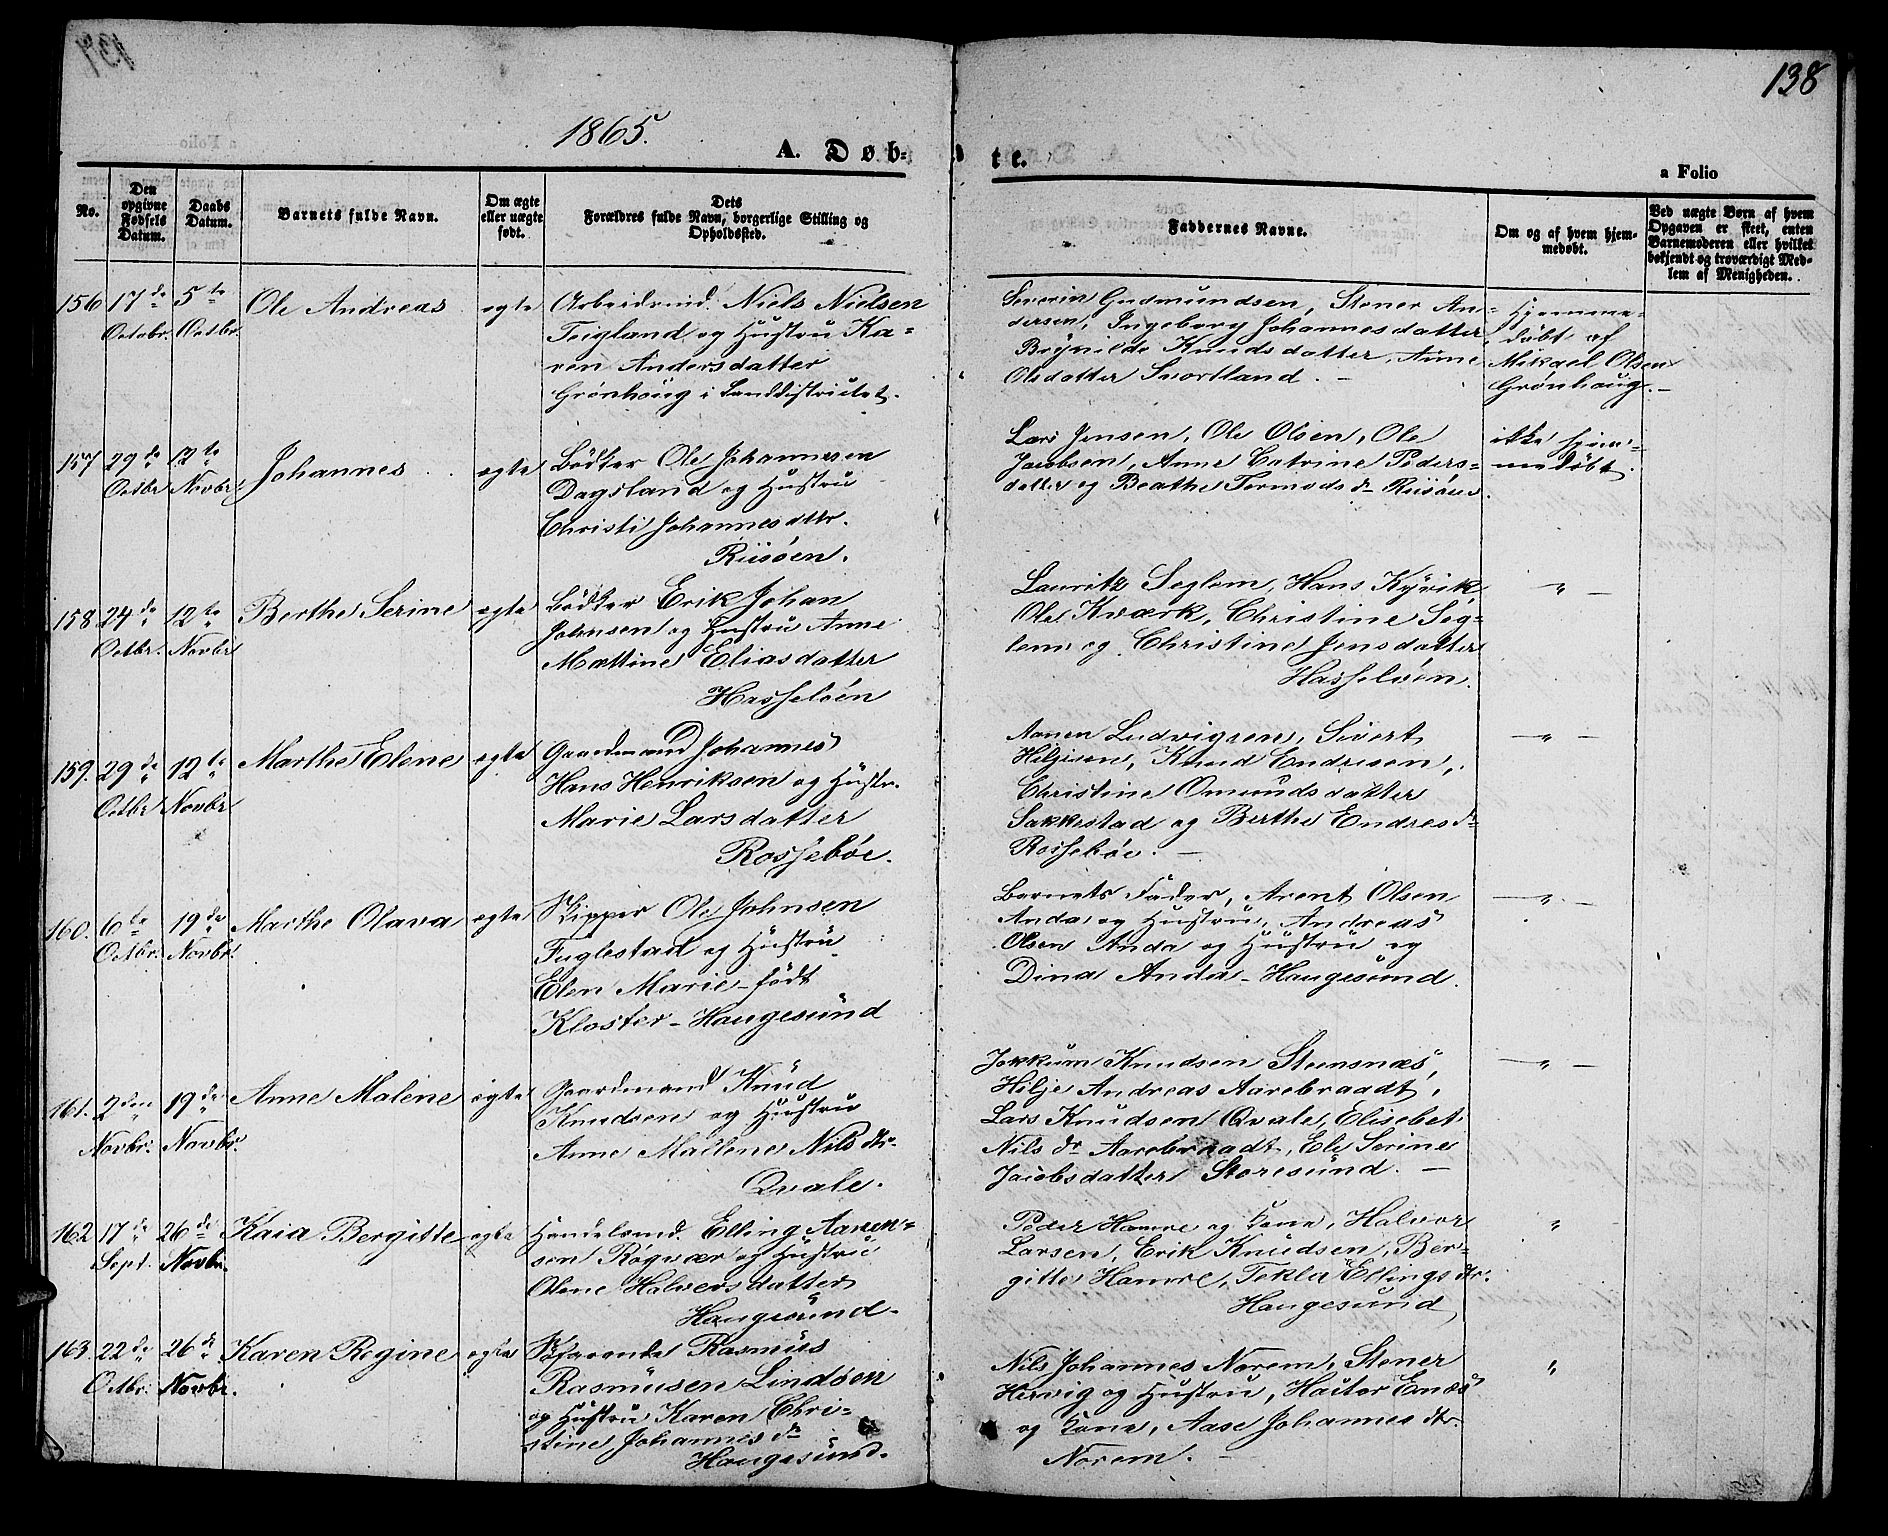 138
1865.
A. Døb-
te.
a Folio
No.
Den opgivne Fødsels Datum.
Daabs Datum.
Barnets fulde Navn.
Om ægte eller uægte født.
Dets Forældres fulde Navn, borgerlige Stilling og Opholdssted.
Faddernes Navne.
Om og af hvem hjemmedøbt.
Ved uægte Børn af hvem Opgaven er skeet, enten Barnemoderen eller hvilket bekjendt og troværdigt Medlem af Menigheden.
156 17de 5te Ole Andreas ægte
Octobr. Octbr.
Arbeidsmd. Niels Nielsen
Teigland og Hustru Ka-
ren Andersdatter
Grønhoug i Landdistrictet.
Severin Gudmundsen, Stener An-
dersen, Ingeborg Johannesdatter
Brynilde Knudsdatter, Anne
Olsdatter Svortland. —
Hjemme-
døbt af
Mikael Olsen
Grønhaug. —
157 29de 12te Johannes ægte
Octbr Novbr.
Bødker Ole Johannesen
Dagsland og Hustru
Christi Johannesdttr.
Riisøen.
Lars Jensen, Ole Olsen, Ole
Jacobsen, Anne Catrine Peders-
datter og Beathe Tormodsdr Riisøen
ikke hjem-
medøbt.
158 24de 12te Berthe Serine ægte
Octbr. Novbr
Bødker Erik Johan
Johnsen og Hustru Anne
Mættine Eliasdatter
Hasseløen
Lauritz Seglem, Hans Kyvik,
Ole Kværk, Christine Seg-
lem og Christine Jensdatter
Hasseløen.
" —
159. 29de 12te Marthe Elene ægte
Octbr Novbr
Gaardmand Johannes
Hans Henriksen og Hustr.
Marie Larsdatter
Rossebøe.
Aanen Ludvigsen, Sivert
Hiljesen, Knud Endresen,
Christine Omundsdatter
Sakkestad og Berthe Endresdr
Rossebøe. —
— " —
160. 6te 19de Marthe Olava ægte
Octbr. Novbr.
Skipper Ole Johnsen
Fuglestad og Hustru
Elen Marie - født
Kloster - Haugesund
Barnets Fader, Arent Olsen
Anda og Hustru, Andreas
Olsen Anda og Hustru og
Dina Anda - Haugesund.
— " —
161. 2den 19de Anne Malene ægte
Novbr. Novbr.
Gaardmand Knud
Knudsen og Hustru
Anne Mallene Nilsdtr.
Qvale.
Jokkum Knudsen Stensnæs,
Hilje Andreas Aarebraadt,
Lars Knudsen Qvale, Elisebet
Nilsdr Aarebraadt, Eli Serine
Jacobsdatter Storesund. —
— " —
162 17de 26de Kaia Bergitte ægte
Sept. Novbr.
Handelsmd. Elling Aanen-
sen Røgvær og Hustru
Olene Halvorsdatter
Haugesund -
Peder Hamre og Kone, Halvor
Larsen, Erik Knudsen, Ber-
gitte Hamre, Tekla Ellingsdtr.
Haugesund
"
163. 22de 26de Karen Regine ægte
Octbr. Novbr.
Søfarende Rasmus
Rasmusen Lindøen
og Hustru Karen Chri-
stine Johannesdr
Haugesund.
Nils Johannes Norem, Stener
Hervig og Hustru, Haktor Enæs
og Kone, Aase Johannesdtr.
Norem. —
"